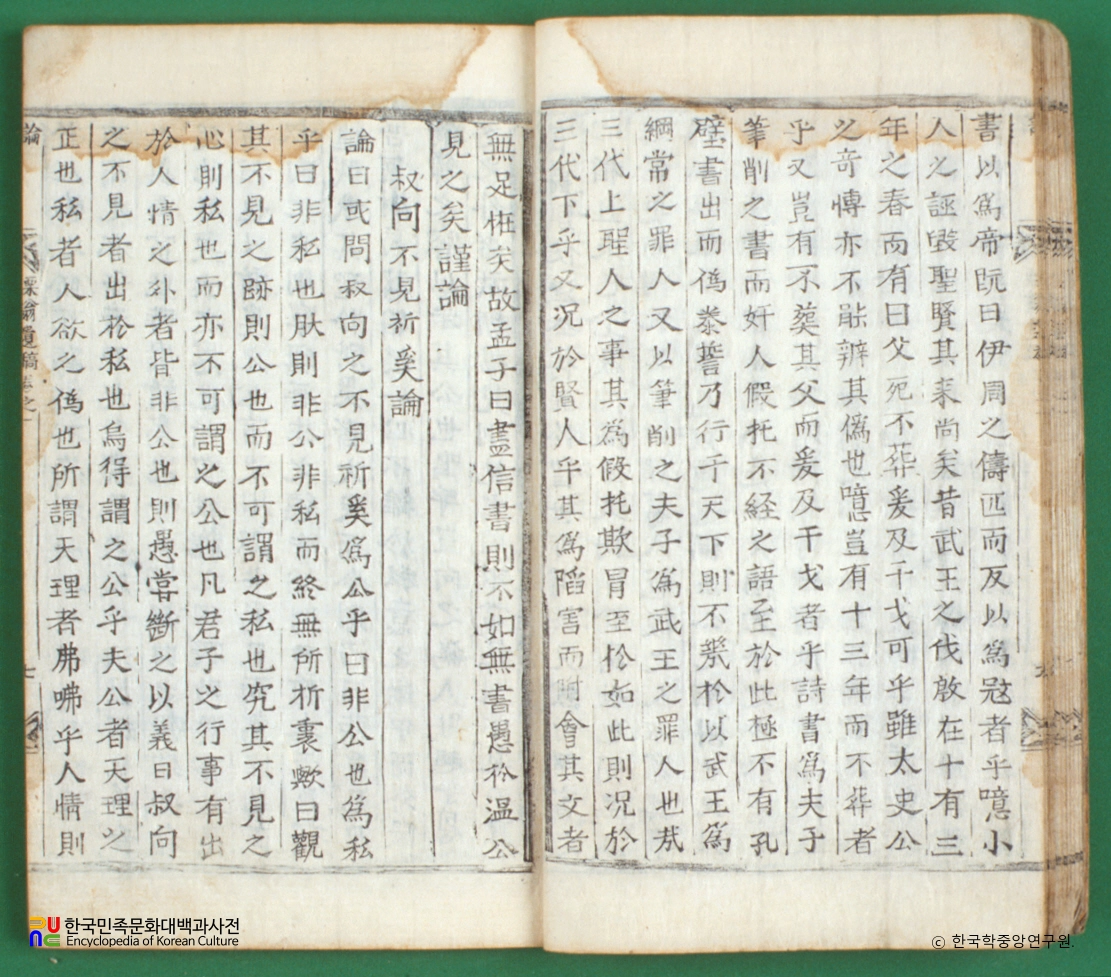 書以爲帝阮曰伊周之儔匹而反以爲冦者乎噫小
人之誣毁聖賢其来尚矣昔武王之伐殷在十有三
年之春而有曰父死不葬爰及干戈可乎雖太史公
之奇博亦不能辨其僞也噫豈有十三年而不葬者
乎又豈有不葬其父而爰及干戈者乎詩書爲夫子
筆削之書而奸人假托不経之語至於此極不有孔
壁書出而僞泰誓乃行于天下則不幾於以武王爲
綱常之罪人又以筆削之夫子爲武王之罪人也㢤
三代上聖人之事其爲假托欺冒至於如此則况於
三代下乎又况於賢人乎其爲謟害而附會其文者
無足恠矣故孟子曰盡信書則不如無書愚於温公
見之矣謹論
叔向不見祈奚論
論曰或問叔向之不見祈奚爲公乎曰非公也爲私
乎曰非私也然則非公非私而終無所折衷歟曰觀
其不見之跡則公也而不可謂之私也究其不見之
心則私也而亦不可謂之公也凡君子之行事有出
於人情之外者皆非公也則愚甞斷之以義曰叔向
之不見者出於私也烏得謂之公乎夫公者天理之
正也私者人欲之僞也所謂天理者咈咈乎人情則
論
七
한국민족문화대백과사전
Encyclopedia of Korean Culture
ⓒ 한국학중앙연구원.